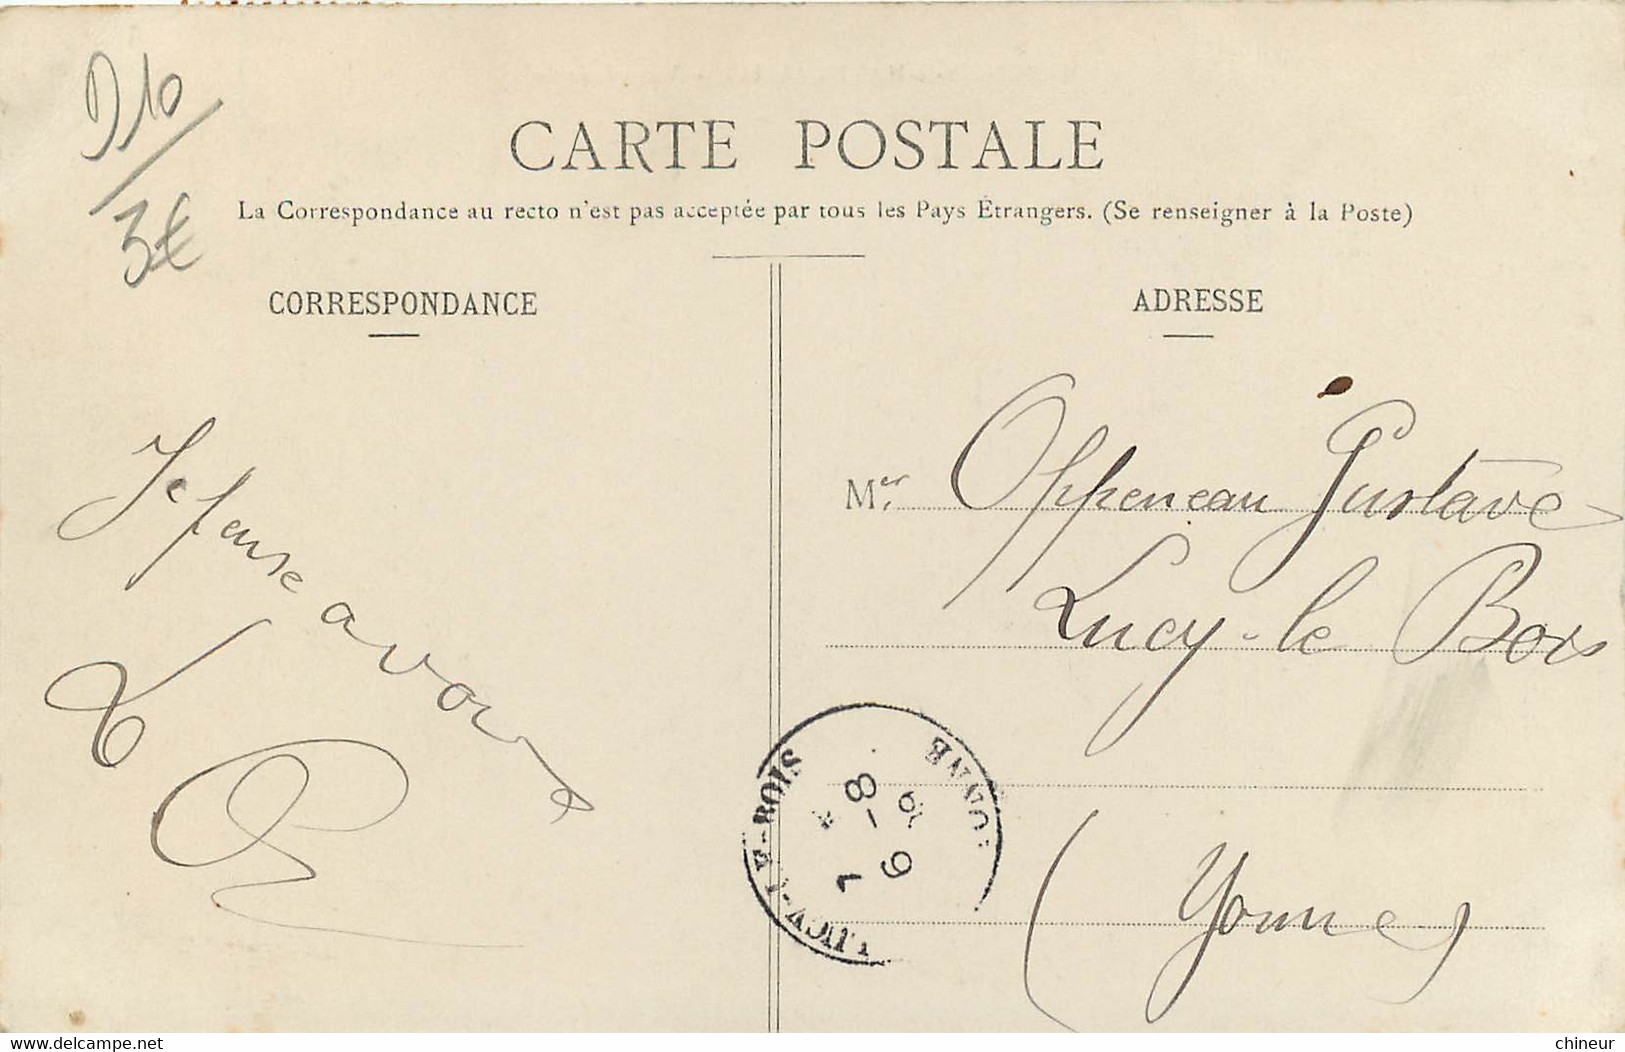 D10
3€
CARTE POSTALE
La Correspondance au recto n'est pas acceptée par tous les Pays Étrangers. (Se renseigner à la Poste)
CORRESPONDANCE
Je pense
a vous
ADRESSE
Mer Oppeneau Gustave
Lucy-le Bois
(Yonne)
LUCY-LE-BOIS
YONNE
8-9
www.delcampe.net
chineur